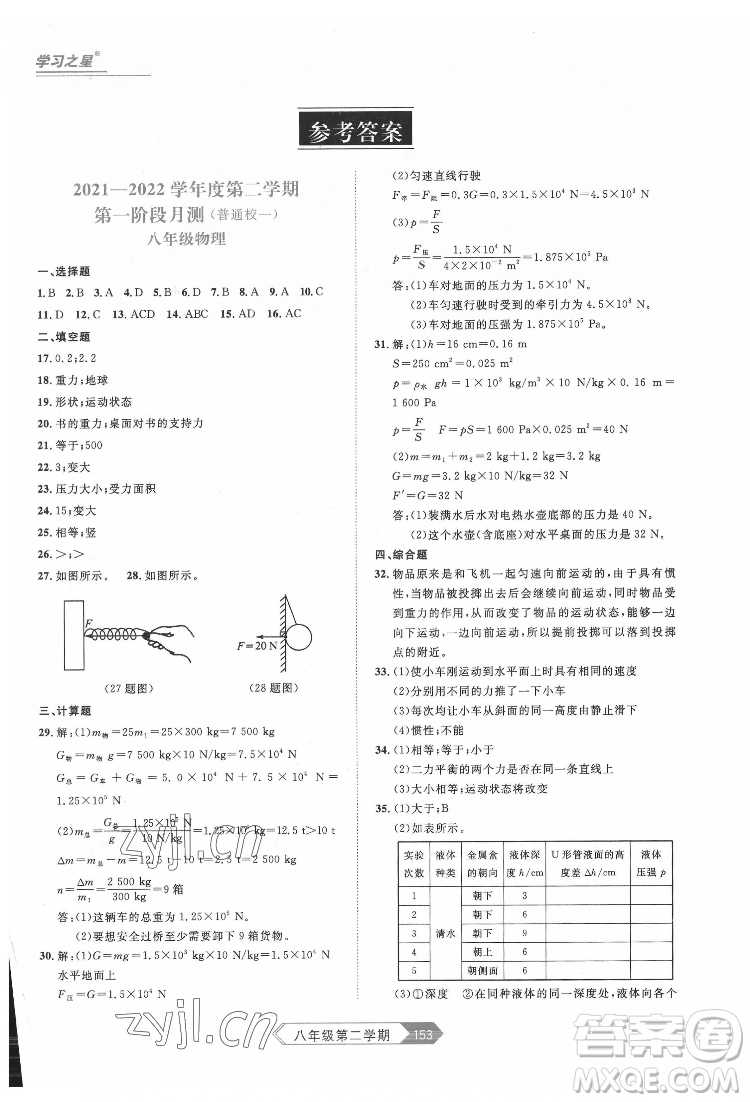 学习之星®
参考答案
2021—2022 学年度第二学期
第一阶段月测(普通校一)
八年级物理
一、选择题
1. B 2. B 3. A 4. D 5. B 6. D 7. B 8. C 9. A 10. C
11. D 12. C 13. ACD 14. ABC 15. AD 16. AC
二、填空题
17. 0.2;2.2
18. 重力;地球
19. 形状;运动状态
20. 书的重力;桌面对书的支持力
21. 等于;500
22. 3;变大
23. 压力大小;受力面积
24. 15;变大
25. 相等;竖
26. >;>
27. 如图所示。 28. 如图所示。
F
F=20 N
(27 题图) (28 题图)
三、计算题
29. 解:(1)m物=25m₁=25×300 kg=7 500 kg
G物=m物 g=7 500 kg×10 N/kg=7.5×10⁴ N
G总=G车+G物=5.0×10⁴ N+7.5×10⁴ N=
1.25×10⁵ N
(2)m总=G总/g=1.25×10⁵ N/10 N/kg=12.5×10³ kg=12.5 t>10 t
Δm=m总-m=12.5 t-10 t=2.5 t=2 500 kg
n=Δm/m₁=2 500 kg/300 kg≈9 箱
答:(1)这辆车的总重为 1.25×10⁵ N。
(2)要想安全过桥至少应卸下 9 箱货物。
30. 解:(1)G=mg=1.5×10³ kg×10 N/kg=1.5×10⁴ N
水平地面上
F压=G=1.5×10⁴ N
(2)匀速直线行驶
F牵=F阻=0.3G=0.3×1.5×10⁴ N=4.5×10³ N
(3)p=F/S
p=F压/S=1.5×10⁴ N/4×2×10⁻² m²=1.875×10⁵ Pa
答:(1)车对地面的压力为 1.5×10⁴ N。
(2)车匀速行驶时受到的牵引力为 4.5×10³ N。
(3)车对地面的压强为 1.875×10⁵ Pa。
31. 解:(1)h=16 cm=0.16 m
S=250 cm²=0.025 m²
p=ρ水 gh=1×10³ kg/m³×10 N/kg×0.16 m=
1 600 Pa
p=F/S F=pS=1 600 Pa×0.025 m²=40 N
(2)m=m₁+m₂=2 kg+1.2 kg=3.2 kg
G=mg=3.2 kg×10 N/kg=32 N
F′=G=32 N
答:(1)装满水后水对电热水壶底部的压力为 40 N。
(2)这个水壶(含底座)对水平桌面的压力为 32 N。
四、综合题
32. 物品原来是和飞机一起匀速向前运动的,由于具有惯
性,当物品被投掷出去后会继续向前运动,同时物品受
到重力的作用,从而改变了物品的运动状态,能够一边
向下运动,一边向前运动。所以提前投掷可以到达投掷
点的附近。
33. (1)使小车刚运动到水平面上时具有相同的速度
(2)分别用不同的力推了一下小车
(3)每次均让小车从斜面的同一高度由静止滑下
(4)惯性;不能
34. (1)相等;等于;小于
(2)二力平衡的两个力是否在同一条直线上
(3)大小相等;运动状态将改变
35. (1)大于;B
(2)如表所示。
实验次数 液体种类 金属盒的朝向 液体深度 h/cm U 形管液面的高度差 h/cm 液体压强 p
1 清水 朝下 3
2 朝下 6
3 朝下 9
4 朝上 6
5 朝侧面 6
(3)①深度 ②在同种液体的同一深度处,液体向各个
八年级第二学期 153
zyjl.cn
zyjl.cn
答案圈
MXQE.COM